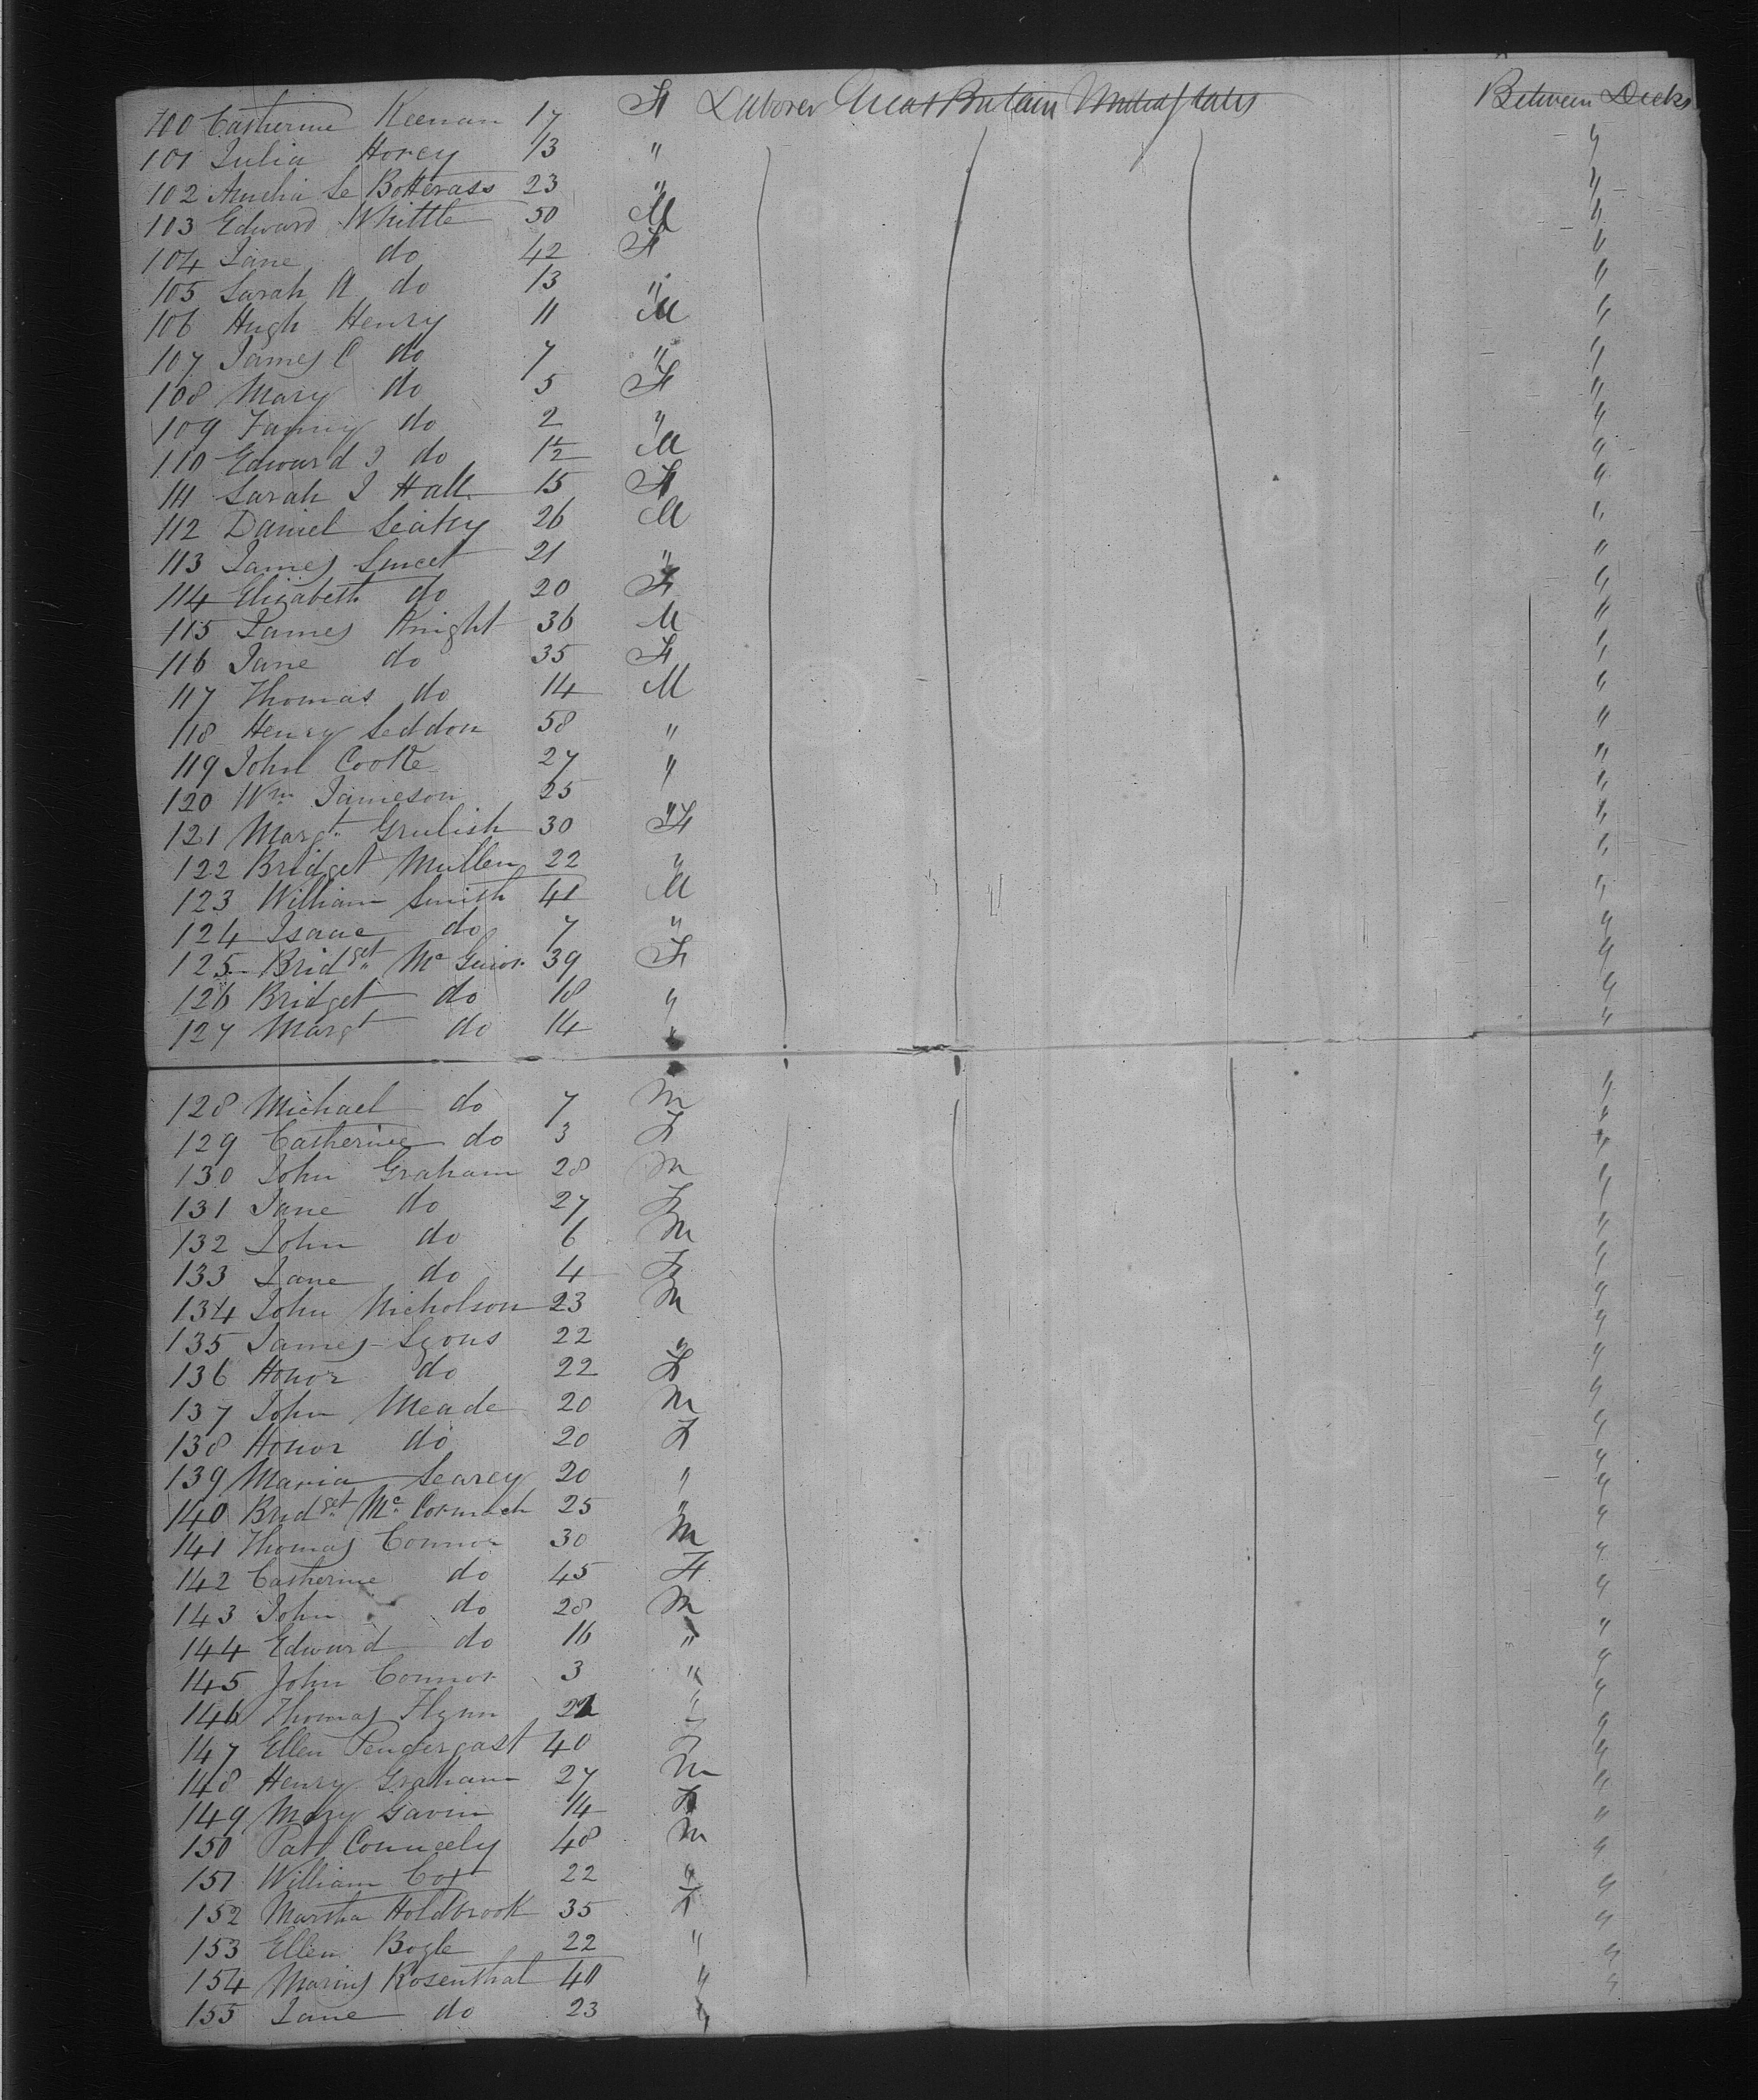 100 Catherine Keenan 17 F Laborer Great Britain United States Between Decks
101 Julia Horey 13 " "
102 Amelia Le Botterass 23 " "
103 Edward Whittle 50 M "
104 Jane do 42 F "
105 Sarah A do 13 " "
106 Hugh Henry 11 M "
107 James C do 7 " "
108 Mary do 5 F "
109 Fanny do 2 " "
110 Edward J do 1½ M "
111 Sarah J Hall 15 F "
112 Daniel Leahy 26 M "
113 James 21 " "
114 Elizabeth do 20 F "
115 James Knight 36 M "
116 Jane do 35 F "
117 Thomas do 14 M "
118 Henry Seddon 58 " "
119 John Cooke 27 " "
120 Wm Jameson 25 " "
121 Margt Grulish 30 F "
122 Bridget Mullen 22 " "
123 William Smith 41 M "
124 Isaac do 7 " "
125 Bridget Mc 39 F "
126 Bridget do 18 " "
127 Margt do 14 " "
128 Michael do 7 M "
129 Catherine do 3 F "
130 John Graham 28 M "
131 Jane do 27 F "
132 John do 6 M "
133 Jane do 4 F "
134 John Nicholson 23 M "
135 James Lyons 22 " "
136 Honor do 22 F "
137 John Meade 20 M "
138 Honor do 20 F "
139 Maria Searcy 20 " "
140 Bridget McCormack 25 " "
141 Thomas Connor 30 M "
142 Catherine do 45 F "
143 John do 28 M "
144 Edward do 16 " "
145 John Connor 3 " "
146 Thomas Flynn "
147 Ellen Pendergast 40 F "
148 Henry Graham 27 M "
149 Mary Gavin 14 F "
150 Patt Conneely 48 M "
151 William Cox 22 " "
152 Martha Holdbrook 35 F "
153 Ellen Bogle 22 " "
154 Marius Rosenthal 40 " "
155 Jane do 23 "